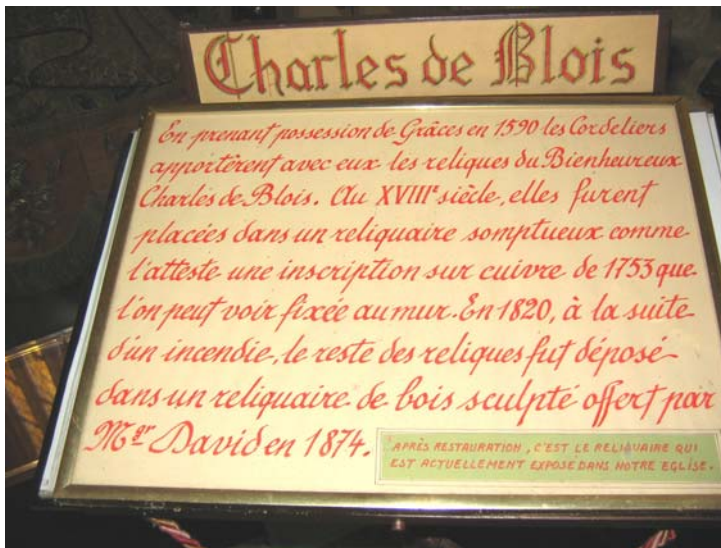 Charles de Blois
En prenant possession de Grâces en 1590 les Cordeliers
apportèrent avec eux les reliques du Bienheureux
Charles de Blois. Au XVIIIᵉ siècle, elles furent
placées dans un reliquaire somptueux comme
l'atteste une inscription sur cuivre de 1753 que
l'on peut voir fixée au mur. En 1820, à la suite
d'un incendie, le reste des reliques fut déposé
dans un reliquaire de bois sculpté offert par
Mᵍʳ David en 1874.
APRÈS RESTAURATION, C'EST LE RELIQUAIRE QUI
EST ACTUELLEMENT EXPOSE DANS NOTRE EGLISE.